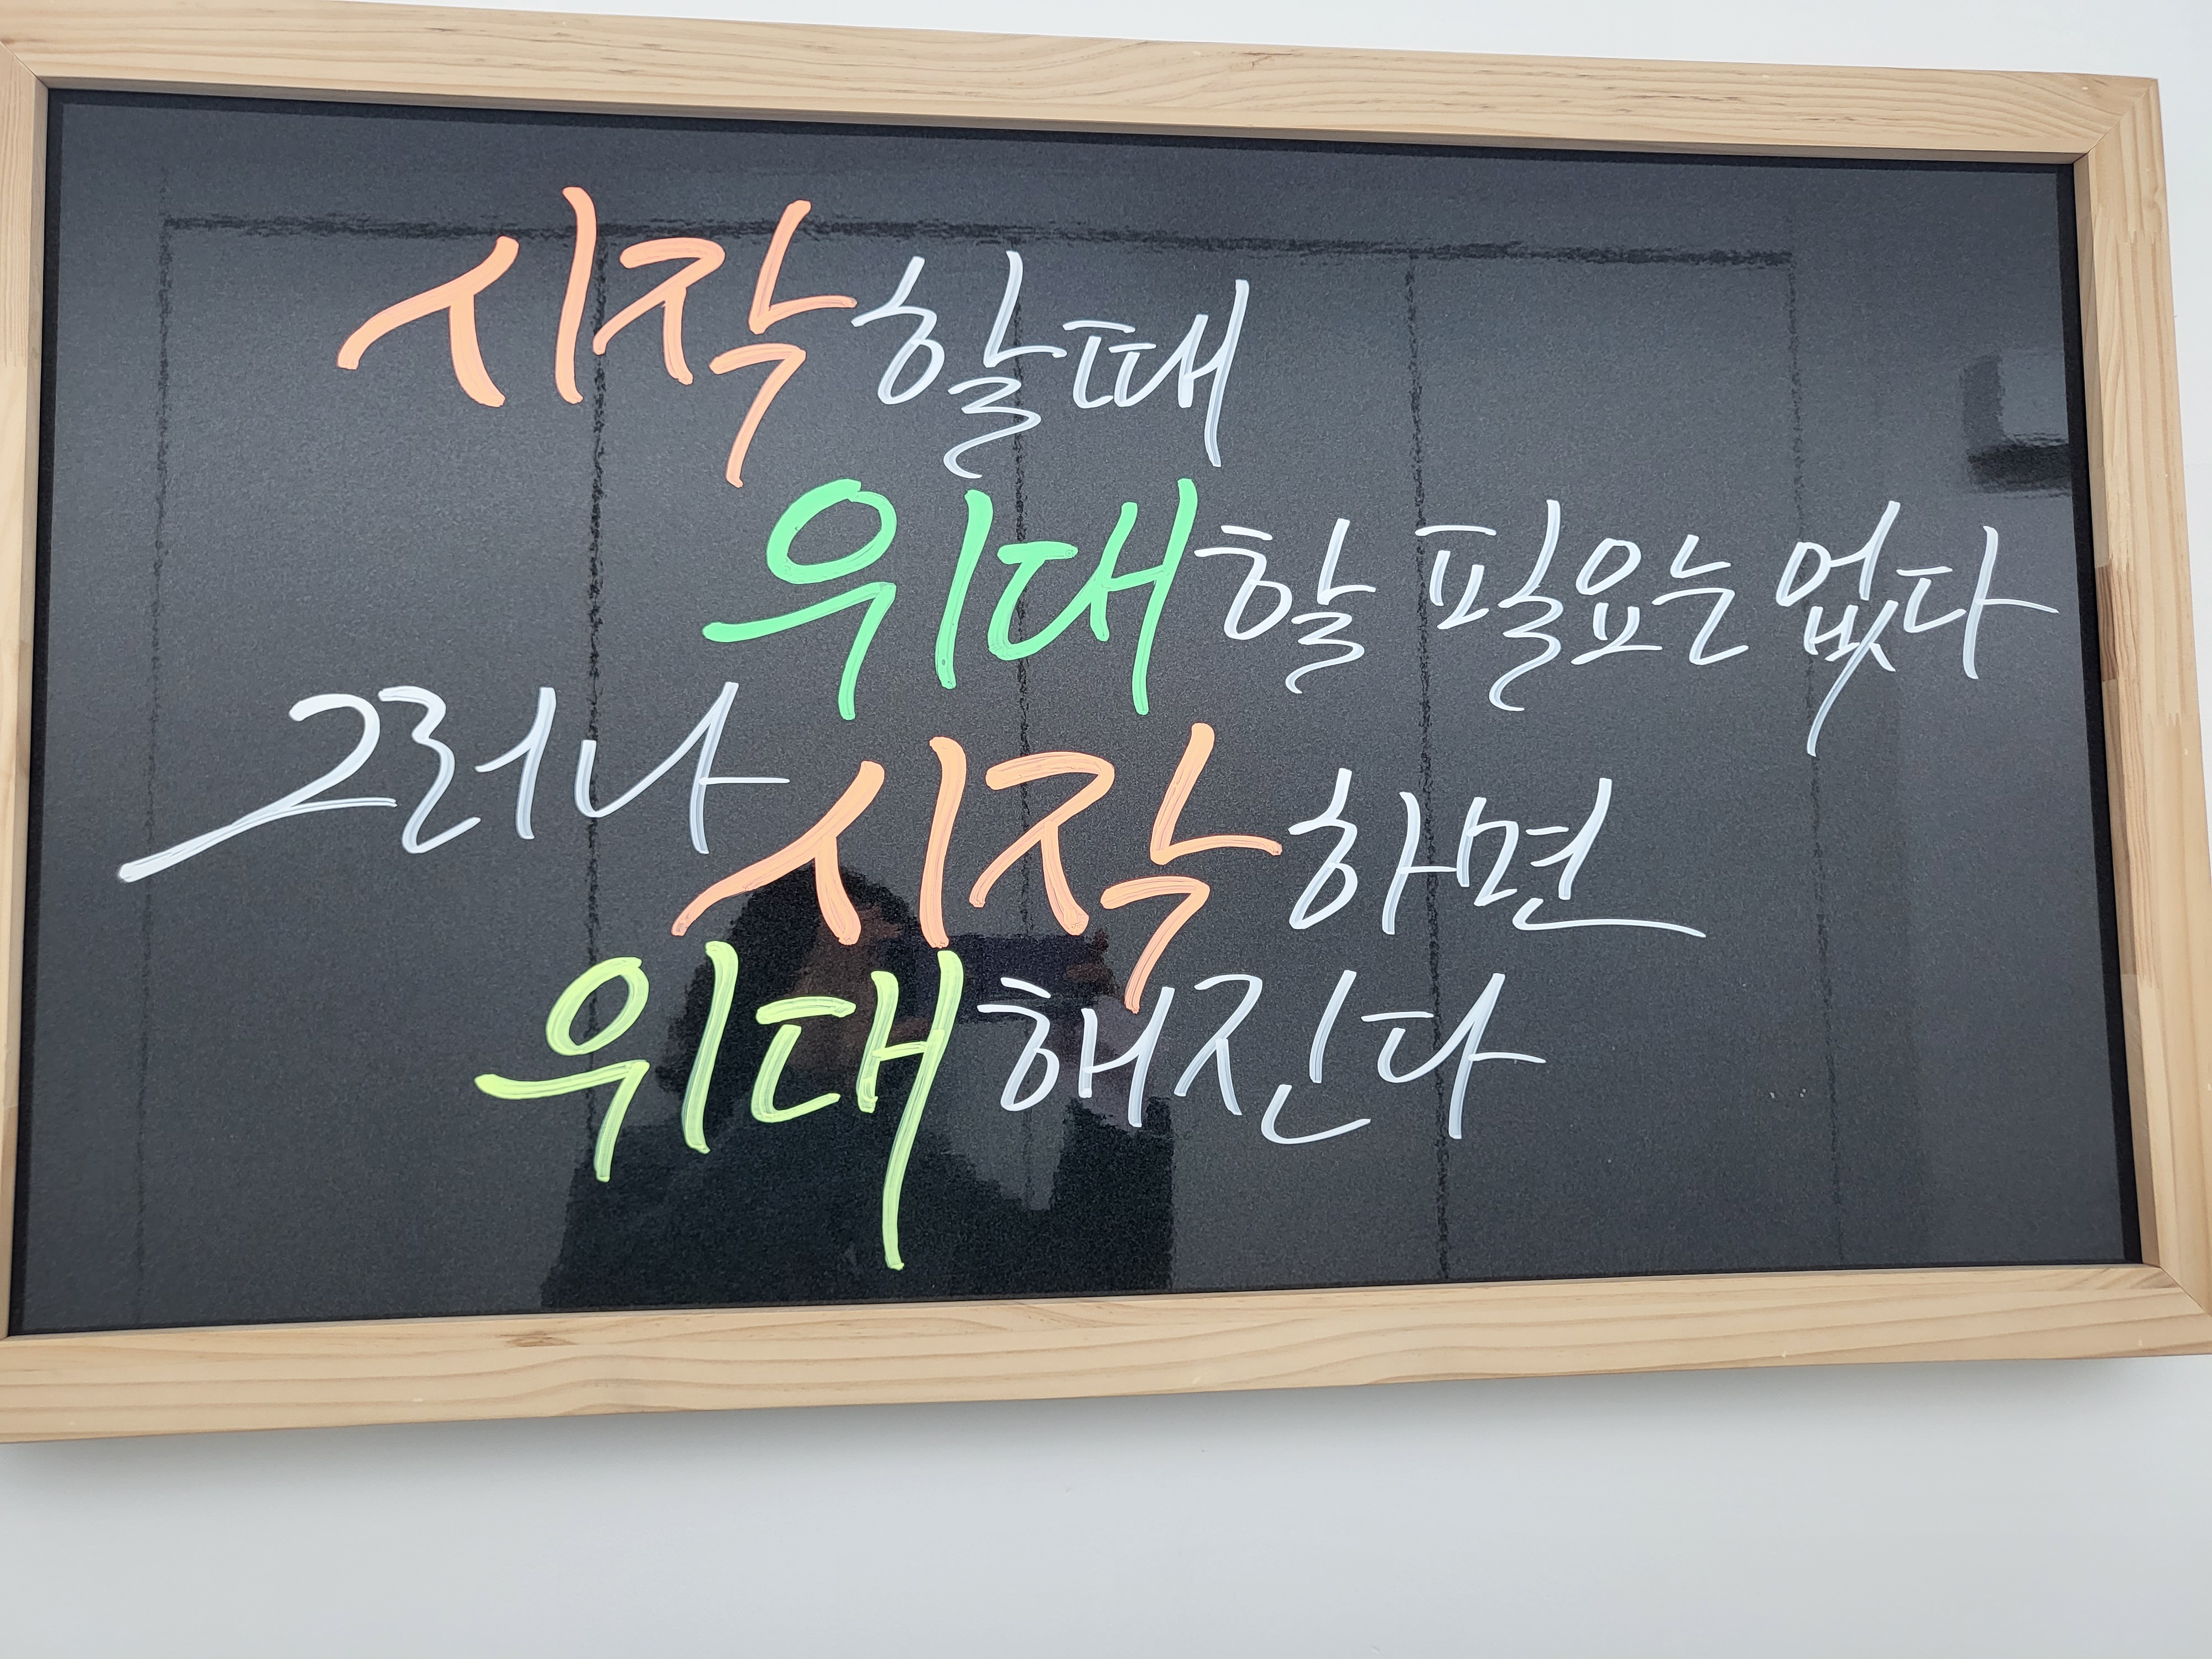 시작할때
위대할 필요는 없다
그러나 시작하면
위대해진다